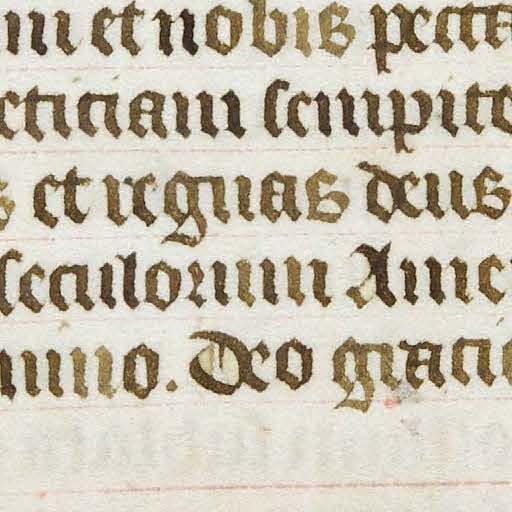 m et nobis pecca
eticiam sempite
s et regnas deus
seculorum Ame
mino. Deo gracia